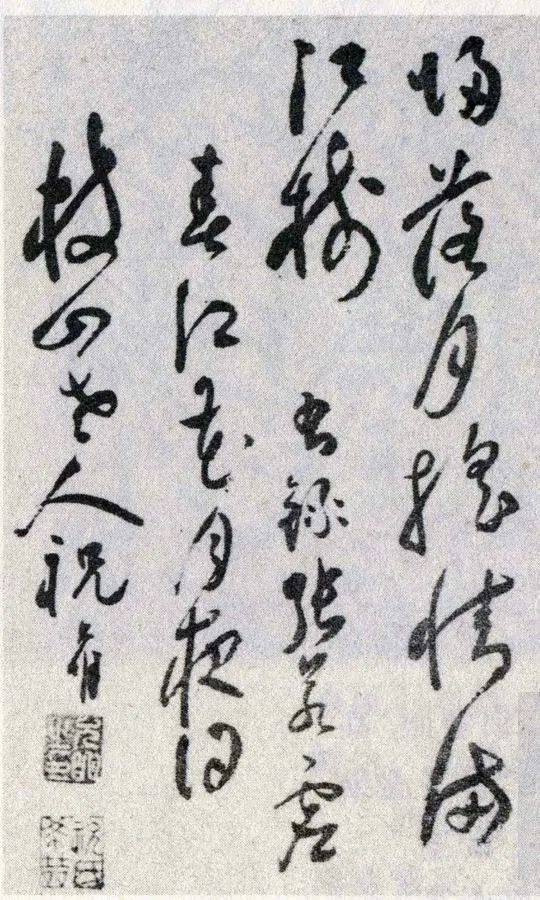 歸落月搖情滿
江樹 右錄張若虛
春江花月夜詞
枝山老人祝允明